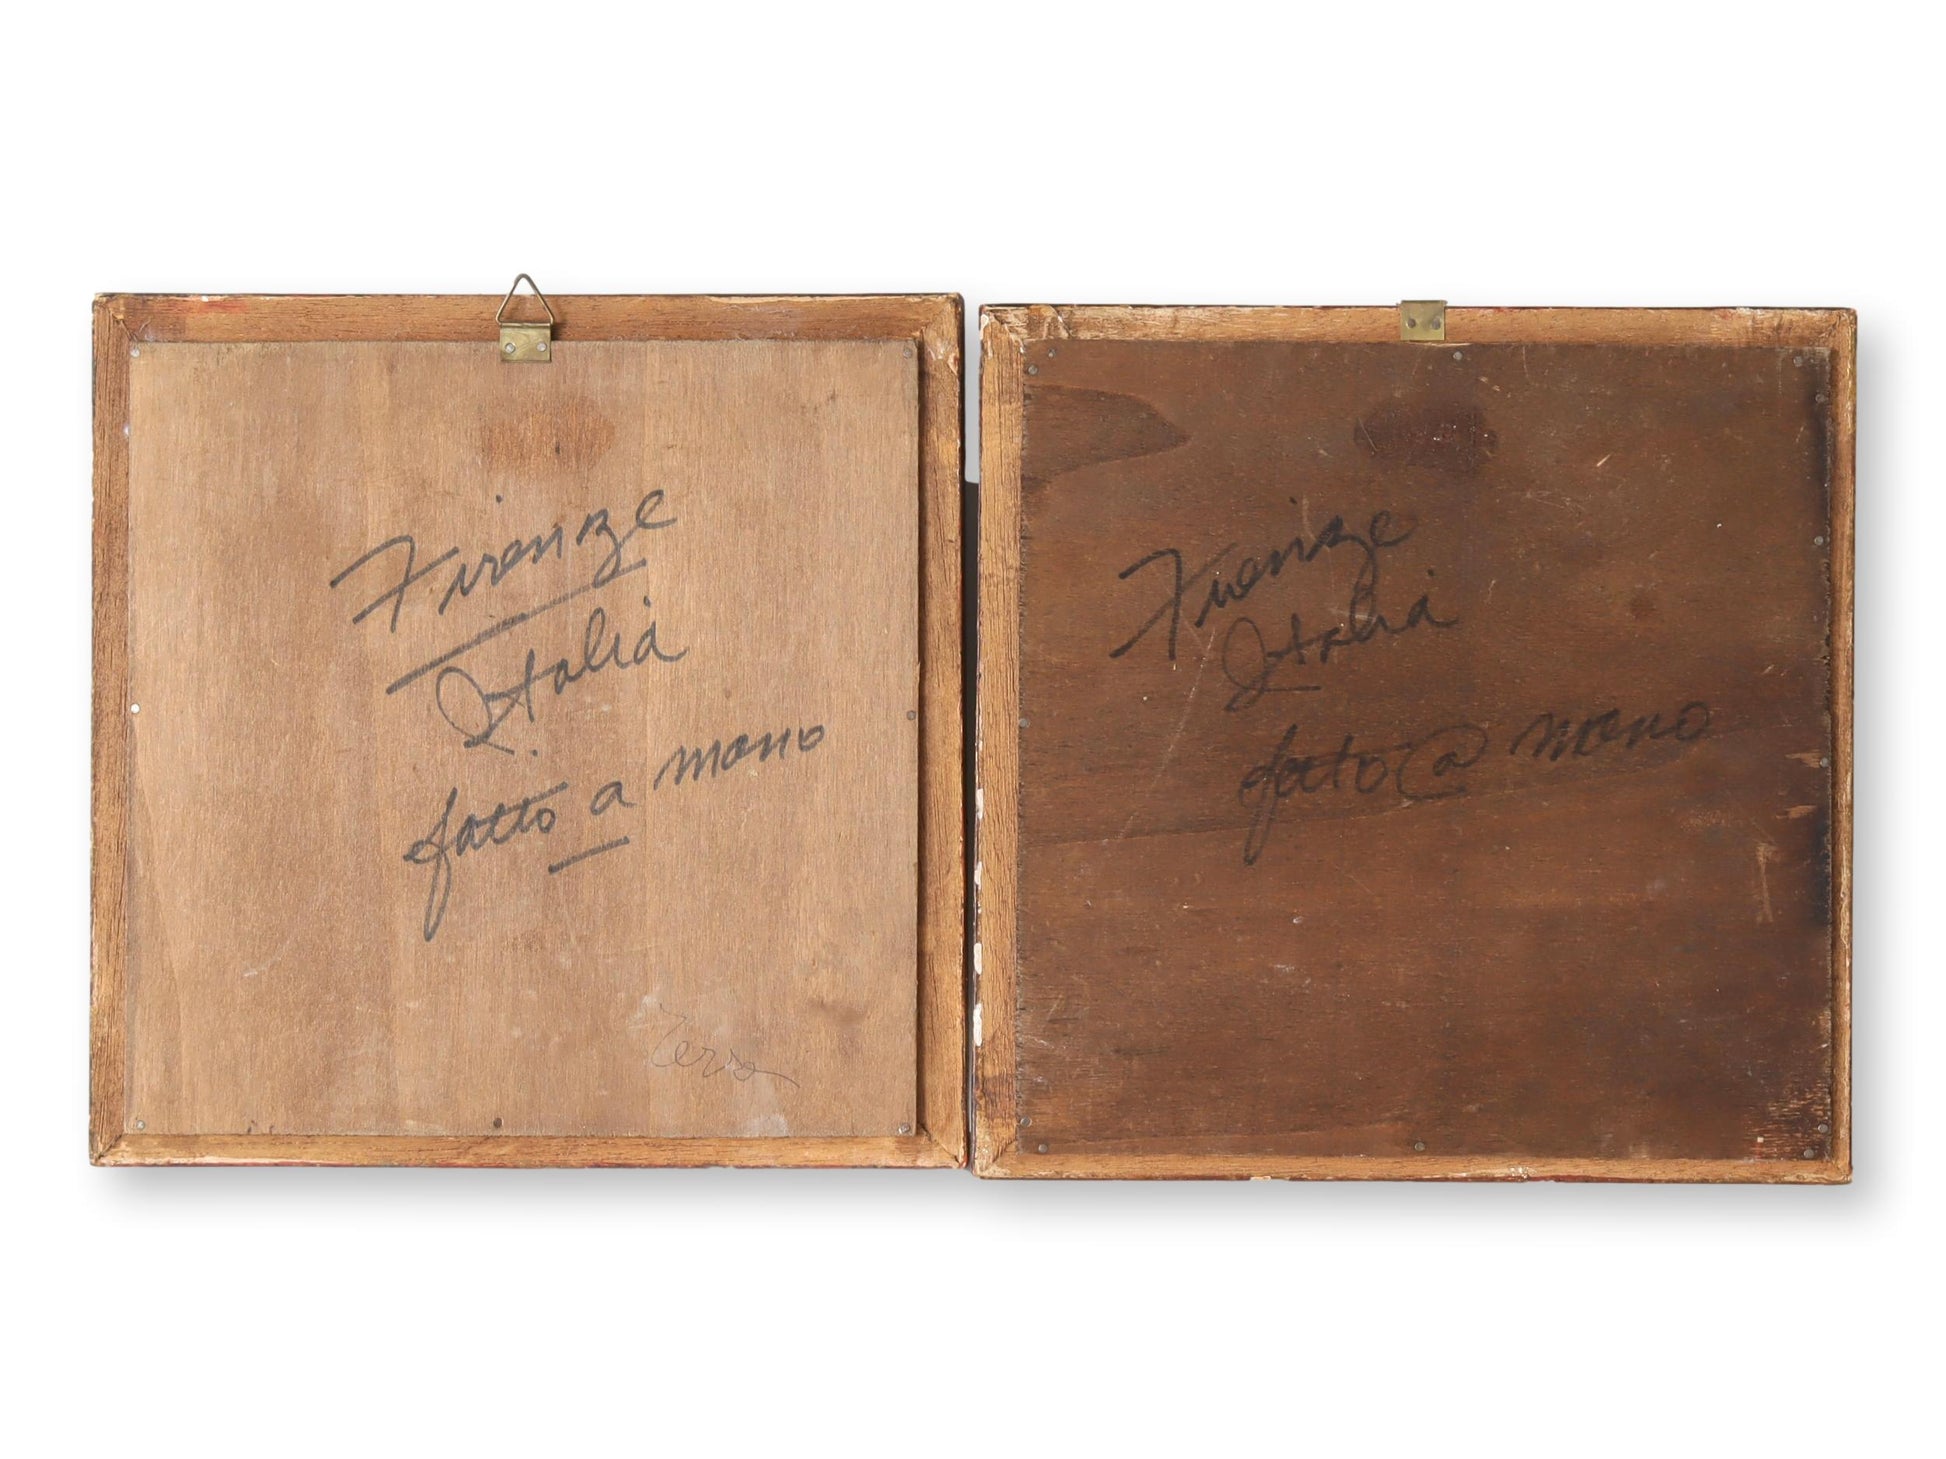 Firenze
Italia
fatto a mano
Firenze
Italia
fatto a mano